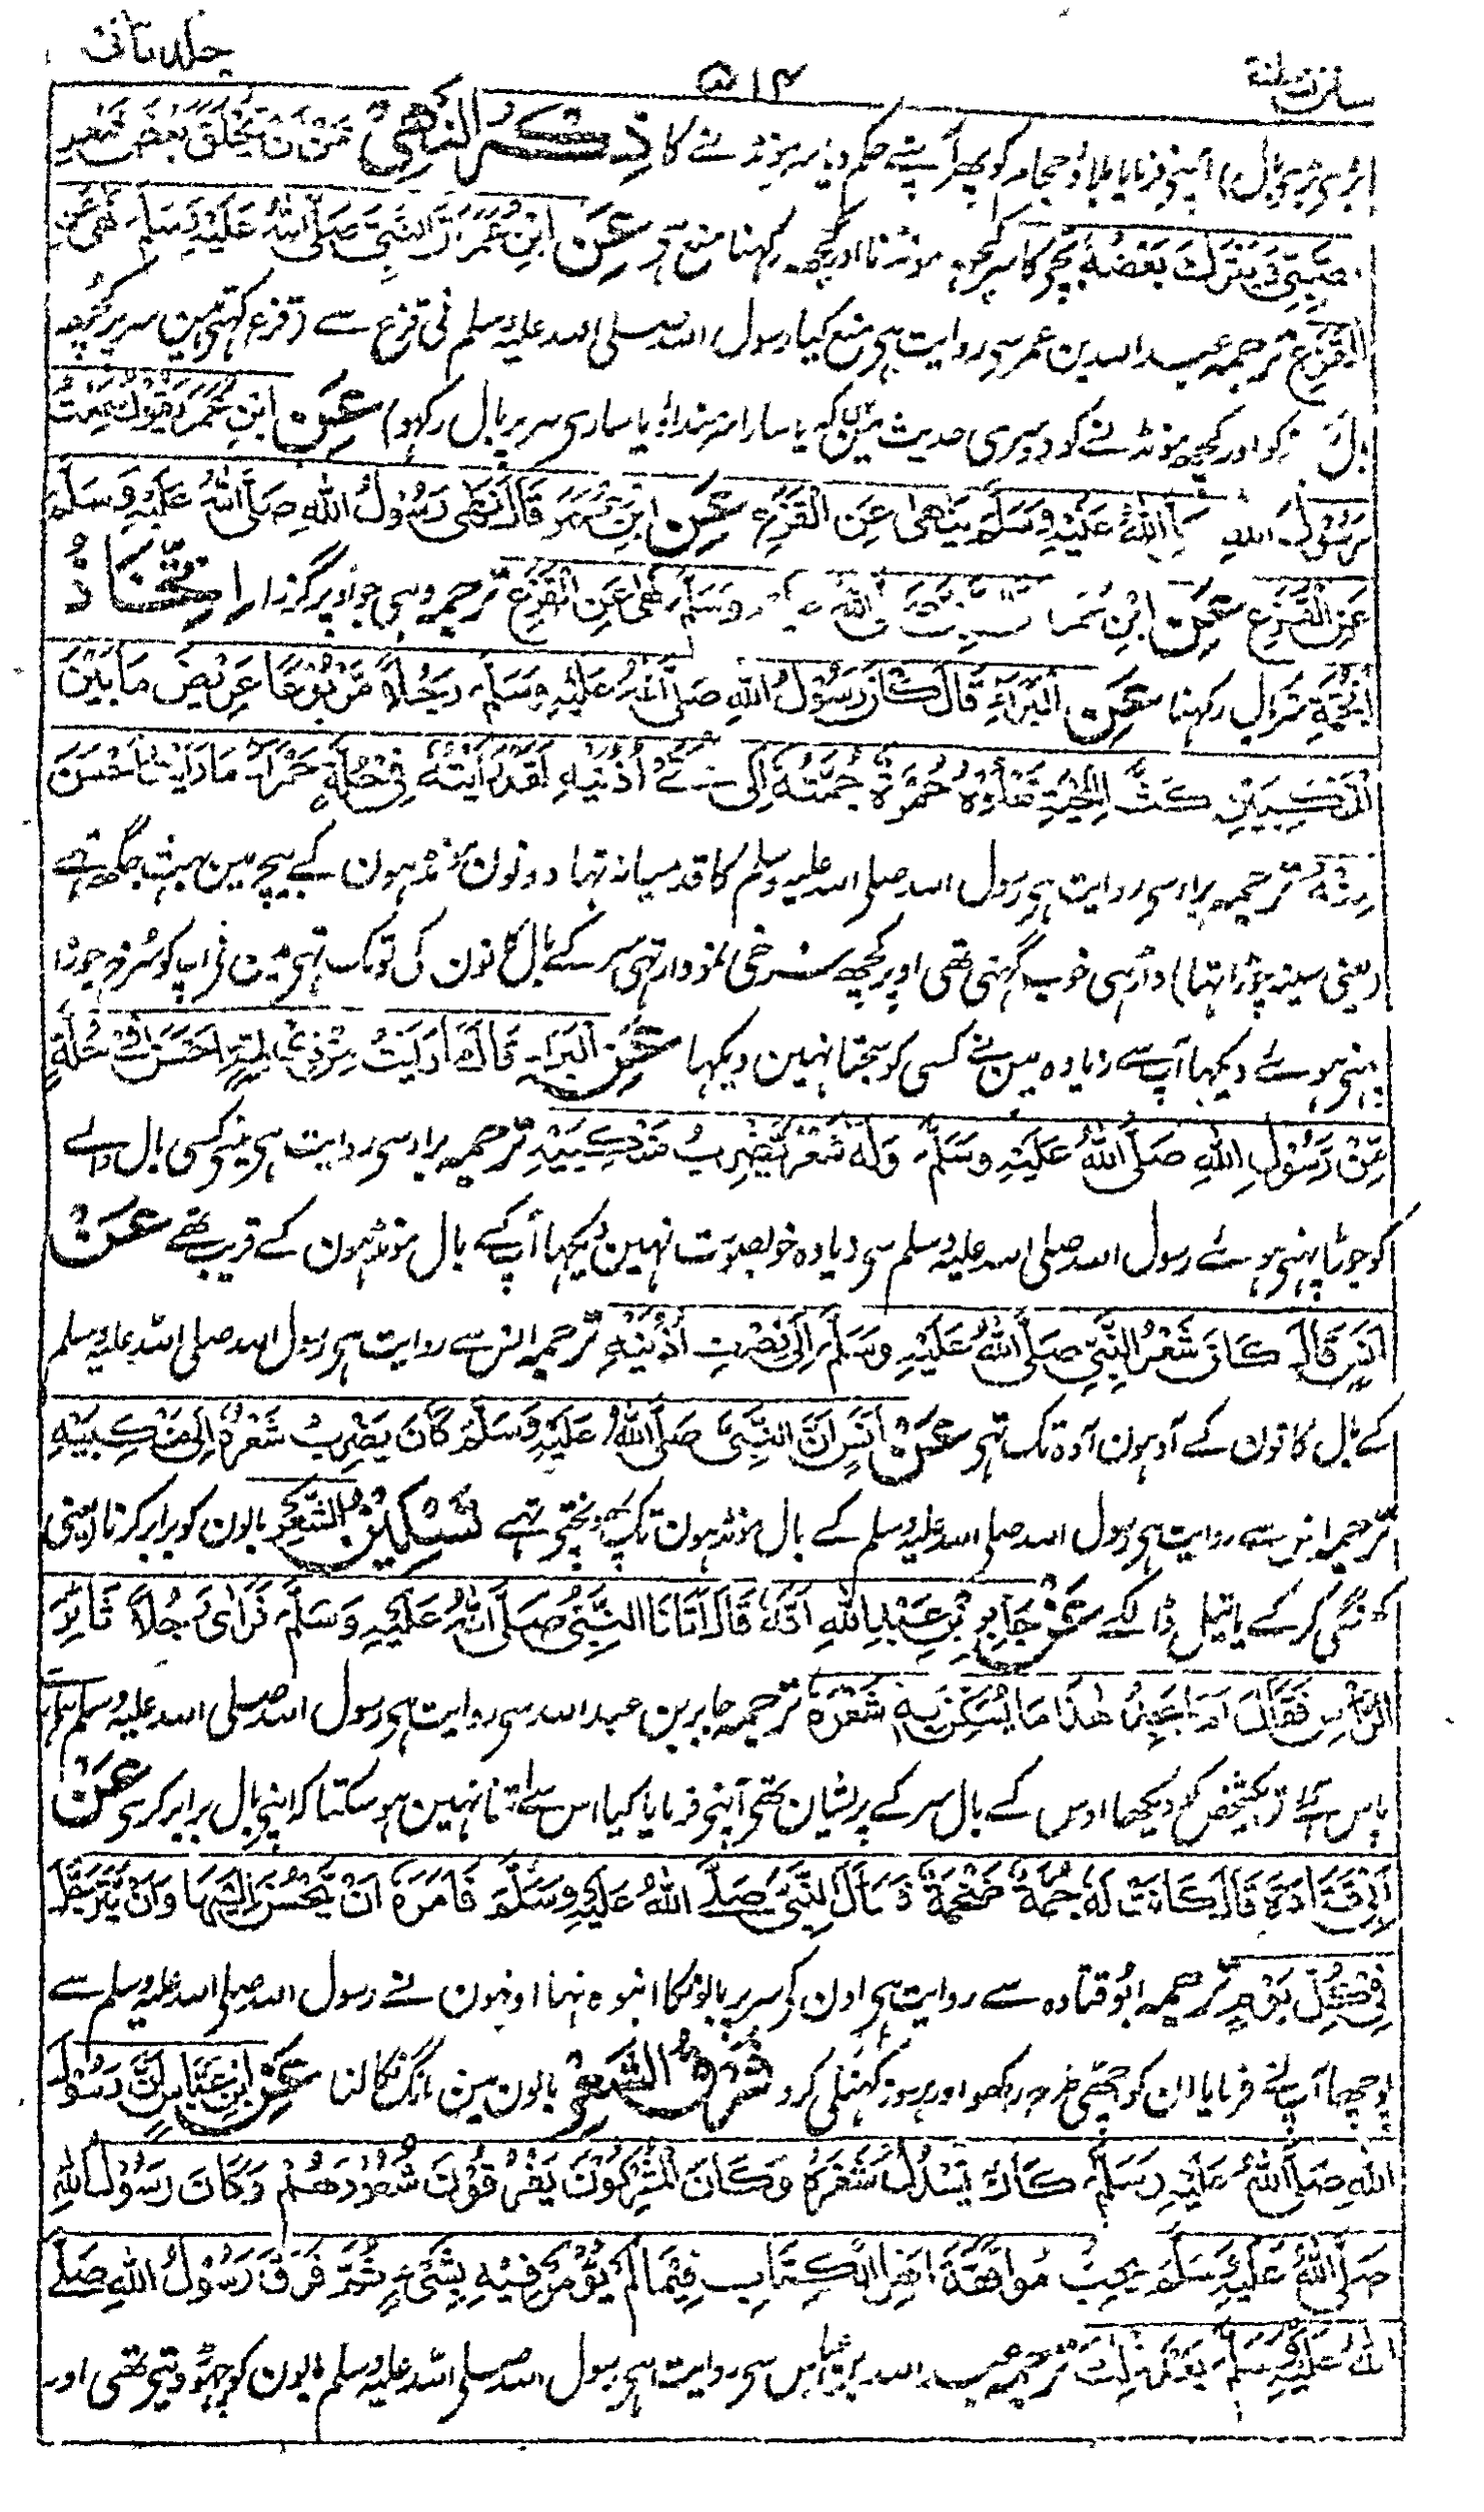 جلد ثانی ۵۱۴ سنن نسائی
بڑی بڑی بال) آپنی فرمایا بلاؤ حجام کو پھر آپنے حکم دیا سر مونڈنے کا ذِكْرُ النَّهْيِ عَنْ أَنْ يُحْلَقَ بَعْضُ شَعْرِ
الصَّبِيِّ وَيُتْرَكَ بَعْضُهُ بچّی کا سر کچھ مونڈنا اور کچھ رکہنا منع ہی عَنِ ابْنِ عُمَرَ أَنَّ النَّبِيَّ صَلَّى اللهُ عَلَيْهِ وَسَلَّمَ نَهَى عَنِ
القَزَعِ ترجمہ عبد اللہ بن عمر سی روایت ہی منع کیا رسول اللہ صلی اللہ علیہ وسلم نی قزع سے (قزع کہتی ہین سر پر کچھ
بال رکھنے کو اور کچھ مونڈنے کو دوسری حدیث مین ہی کہ یا سارا سر منڈاؤ یا ساری سر پر بال رکہو) عَنِ ابْنِ عُمَرَ يَقُولُ سَمِعْتُ
رَسُولَ اللهِ صَلَّى اللهُ عَلَيْهِ وَسَلَّمَ يَنْهَى عَنِ الْقَزَعِ عَنِ ابْنِ عُمَرَ قَالَ نَهَى رَسُولُ اللهِ صَلَّى اللهُ عَلَيْهِ وَسَلَّمَ
عَنِ الْقَزَعِ عَنِ ابْنِ عُمَرَ النَّبِيَّ صَلَّى اللهُ عَلَيْهِ وَسَلَّمَ نَهَى عَنِ الْقَزَعِ ترجمہ وہی جو اوپر گزرا اِتِّخَاذُ
الْجُمَّةِ سر پر بال رکہنا عَنِ الْبَرَاءِ قَالَ كَانَ رَسُولُ اللهِ صَلَّى اللهُ عَلَيْهِ وَسَلَّمَ رَجُلاً مَرْبُوعًا عَرِيضَ مَا بَيْنَ
الْمَنْكِبَيْنِ كَثَّ اللِّحْيَةِ تَعْلُوهُ حُمْرَةٌ جُمَّتُهُ إِلَى شَحْمَتَيْ أُذُنَيْهِ لَقَدْ رَأَيْتُهُ فِي حُلَّةٍ حَمْرَاءَ مَا رَأَيْتُ أَحْسَنَ
مِنْهُ ترجمہ براء سی روایت ہی رسول اللہ صلی اللہ علیہ وسلم کا قد میانہ تہا دونون مونڈہون کے بیچ مین بہت جگہ تھے
(یعنی سینہ چوڑا تہا) داڑہی خوب گہنی تھی اوپر کچھ سرخی نمودار تہی سر کے بال کانون کی لو تک تہی مین نی آپ کو سُرخ جوڑا
پہنی ہوئے دیکہا آپ سے زیادہ مین نے کسی کو سجتا نہین دیکہا عَنِ الْبَرَاءِ قَالَ مَا رَأَيْتُ مِنْ ذِي لِمَّةٍ أَحْسَنَ فِي حُلَّةٍ
مِنْ رَسُولِ اللهِ صَلَّى اللهُ عَلَيْهِ وَسَلَّمَ وَلَهُ شَعْرٌ يَضْرِبُ مَنْكِبَيْهِ ترجمہ براء سی روایت ہی مینی کسی بال والے
کو جوڑا پہنی ہوئے رسول اللہ صلی اللہ علیہ وسلم سی زیادہ خوبصورت نہین دیکہا آپ کے بال مونڈہون کے قریب تھے عَنْ
أَنَسٍ قَالَ كَانَ شَعْرُ النَّبِيِّ صَلَّى اللهُ عَلَيْهِ وَسَلَّمَ إِلَى نِصْفِ أُذُنَيْهِ ترجمہ انس سے روایت ہی رسول اللہ صلی اللہ علیہ وسلم
کے بال کانون کے آدہون آدہ تک تہی عَنْ أَنَسٍ أَنَّ النَّبِيَّ صَلَّى اللهُ عَلَيْهِ وَسَلَّمَ كَانَ يَضْرِبُ شَعْرُهُ إِلَى مَنْكِبَيْهِ
ترجمہ انس سے روایت ہی رسول اللہ صلی اللہ علیہ وسلم کے بال مونڈہون تک پہونچتی تہے تَسْكِينُ الشَّعْرِ بالون کو برابر کرنا (یعنی
کنگی کر کے یا تیل ڈالکے عَنْ جَابِرِ بْنِ عَبْدِ اللهِ أَنَّهُ قَالَ أَتَانَا النَّبِيُّ صَلَّى اللهُ عَلَيْهِ وَسَلَّمَ فَرَأَى رَجُلاً ثَائِرَ
الرَّأْسِ فَقَالَ أَمَا يَجِدُ هٰذَا مَا يُسَكِّنُ بِهِ شَعْرَهُ ترجمہ جابر بن عبد اللہ سی روایت ہی رسول اللہ صلی اللہ علیہ وسلم ہمارے
پاس آئے تو ایک شخص کو دیکھا اوس کے بال سر کے پریشان تھی آپنی فرمایا کیا اس سے اتنا نہین ہو سکتا کہ اپنی بال برابر کری عَنْ
أَبِي قَتَادَةَ قَالَ كَانَتْ لَهُ جُمَّةٌ ضَخْمَةٌ فَسَأَلَ النَّبِيَّ صَلَّى اللهُ عَلَيْهِ وَسَلَّمَ فَأَمَرَهُ أَنْ يُحْسِنَ إِلَيْهَا وَأَنْ يَتَرَجَّلَ
فِي كُلِّ يَوْمٍ ترجمہ ابو قتادہ سے روایت ہی اون کی سر پر بالونکا انبوہ تہا اونہون نے رسول اللہ صلی اللہ علیہ وسلم سے
پوچھا آپنے فرمایا ان کو اچھی طرح رکھو اور ہر روز کنگہی کرو فَرْقُ الشَّعْرِ بالون مین مانگ نکالنا عَنِ ابْنِ عَبَّاسٍ أَنَّ رَسُولَ
اللهِ صَلَّى اللهُ عَلَيْهِ وَسَلَّمَ كَانَ يَسْدُلُ شَعْرَهُ وَكَانَ الْمُشْرِكُونَ يَفْرُقُونَ شُعُورَهُمْ وَكَانَ رَسُولُ اللهِ
صَلَّى اللهُ عَلَيْهِ وَسَلَّمَ يُحِبُّ مُوَافَقَةَ أَهْلِ الْكِتَابِ فِيمَا لَمْ يُؤْمَرْ فِيهِ بِشَيْءٍ ثُمَّ فَرَقَ رَسُولُ اللهِ صَلَّى
اللهُ عَلَيْهِ وَسَلَّمَ بَعْدَ ذٰلِكَ ترجمہ عبد اللہ بن عباس سی روایت ہی رسول اللہ صلی اللہ علیہ وسلم بالون کو چھوڑ دیتی تھی اور